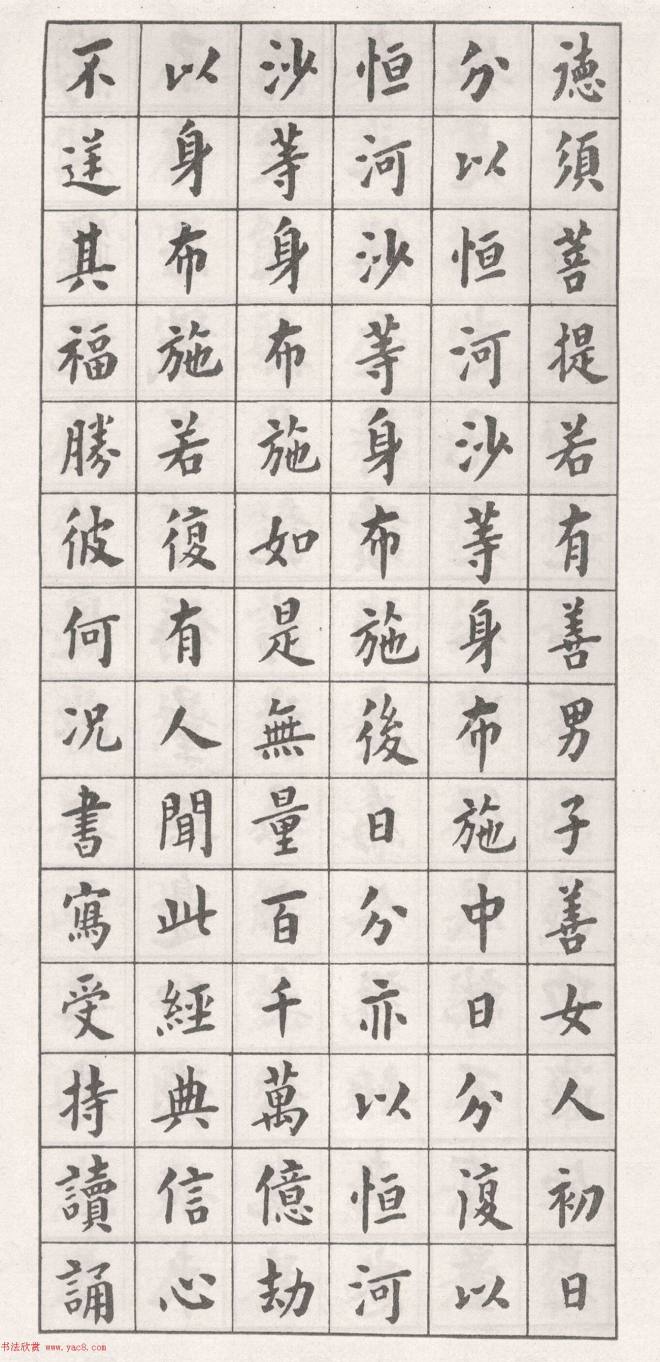 德須菩提若有善男子善女人初日
分以恒河沙等身布施中日分復以
恒河沙等身布施後日分亦以恒河
沙等身布施如是無量百千萬億劫
以身布施若復有人聞此經典信心
不逆其福勝彼何况書寫受持讀誦
书法欣赏 www.yac8.com